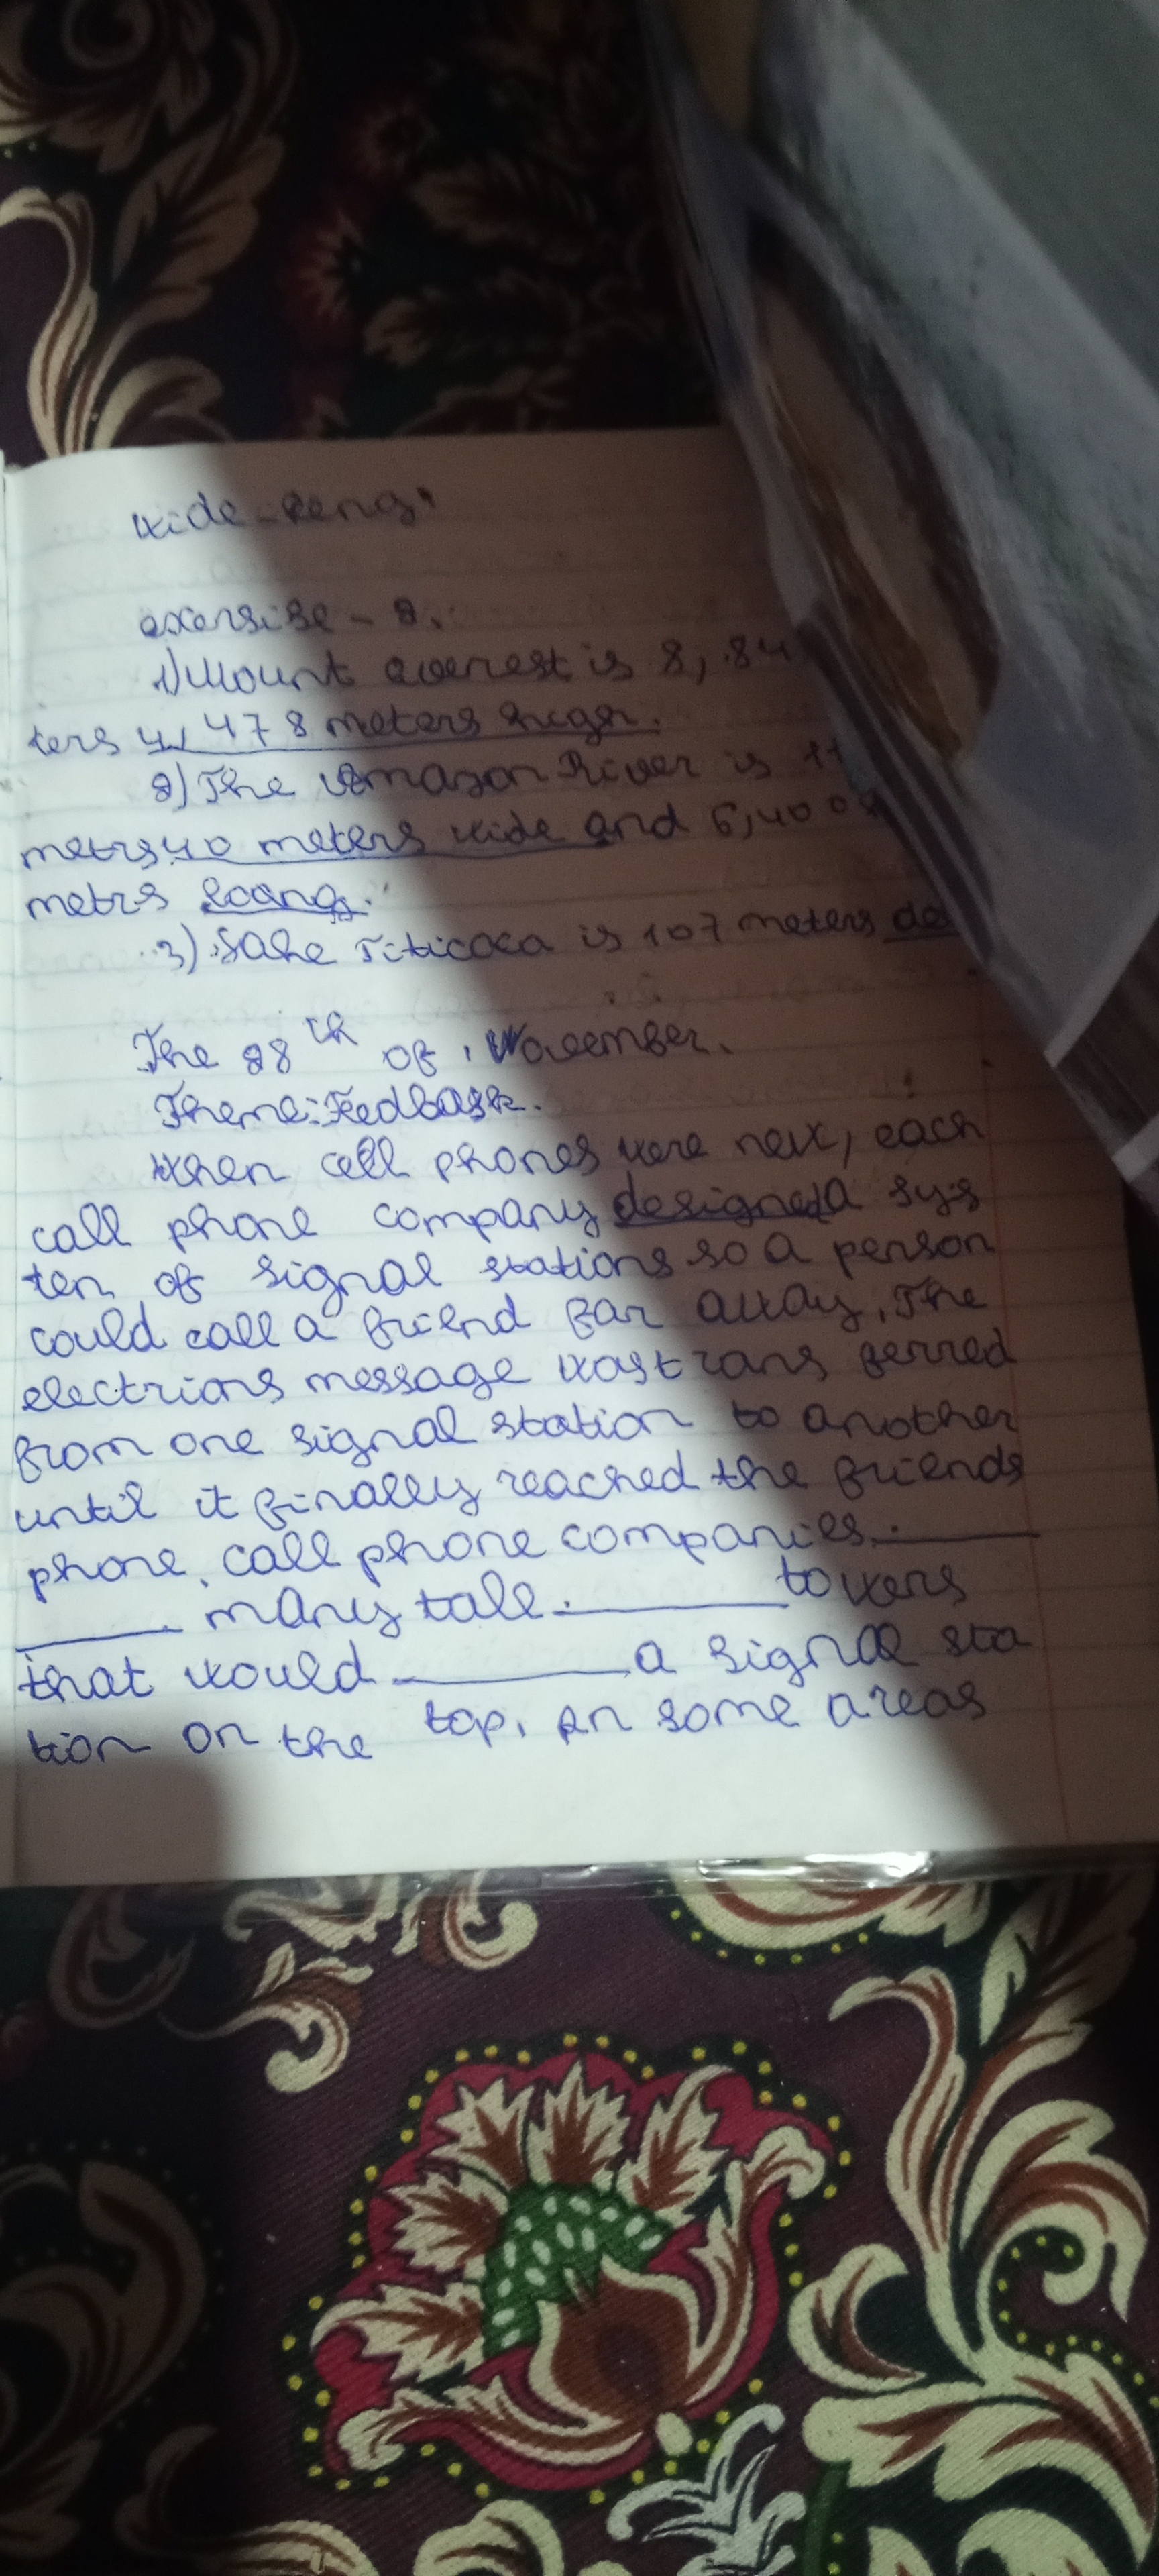 wide-
exersise - 8.
1) Mount everest is 8,84
ters 4, 478 meters
8) The Amazon River is 11
metrs 40 meters wide and 6,400
metrs loang.
3) Lake Titicoca is 107 meters de
The 28th of November.
Theme: Feedback.
when cell phones were new, each
call phone company designeda sys
tem of signal stations so a person
could call a friend far away. The
electrions message wastrans ferred
from one signal station to another
until it finally reached the friends
phone. call phone companies. ________
________ many tall. ________ towers
that would ________ a signal sta
tion on the top, in some areas